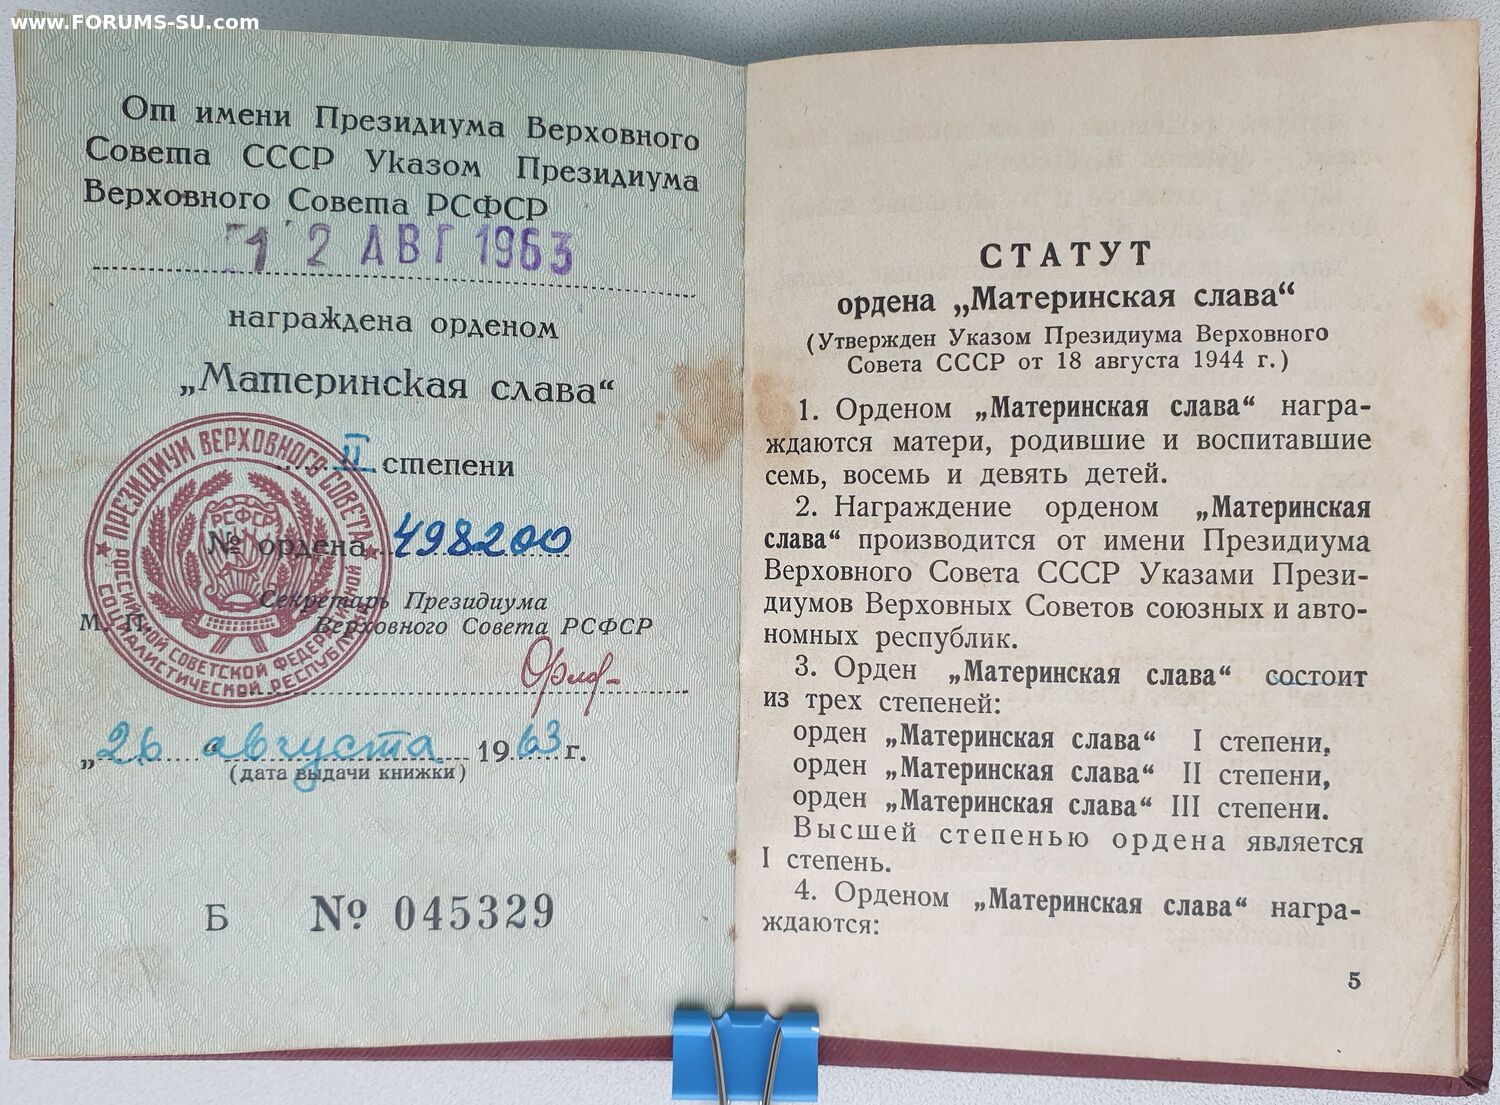 www.FORUMS-SU.com
От имени Президиума Верховного
Совета СССР Указом Президиума
Верховного Совета РСФСР
12 АВГ 1963
награждена орденом
„Материнская слава“
II степени
№ ордена 498200
Секретарь Президиума
М. П. Верховного Совета РСФСР
„26“ августа 1963 г.
(дата выдачи книжки)
Б № 045329
ПРЕЗИДИУМ ВЕРХОВНОГО СОВЕТА
РОССИЙСКОЙ СОВЕТСКОЙ ФЕДЕРАТИВНОЙ
СОЦИАЛИСТИЧЕСКОЙ РЕСПУБЛИКИ
РСФСР
СТАТУТ
ордена „Материнская слава“
(Утвержден Указом Президиума Верховного
Совета СССР от 18 августа 1944 г.)
1. Орденом „Материнская слава“ награ-
ждаются матери, родившие и воспитавшие
семь, восемь и девять детей.
2. Награждение орденом „Материнская
слава“ производится от имени Президиума
Верховного Совета СССР Указами Прези-
диумов Верховных Советов союзных и авто-
номных республик.
3. Орден „Материнская слава“ состоит
из трех степеней:
орден „Материнская слава“ I степени,
орден „Материнская слава“ II степени,
орден „Материнская слава“ III степени.
Высшей степенью ордена является
I степень.
4. Орденом „Материнская слава“ награ-
ждаются:
5